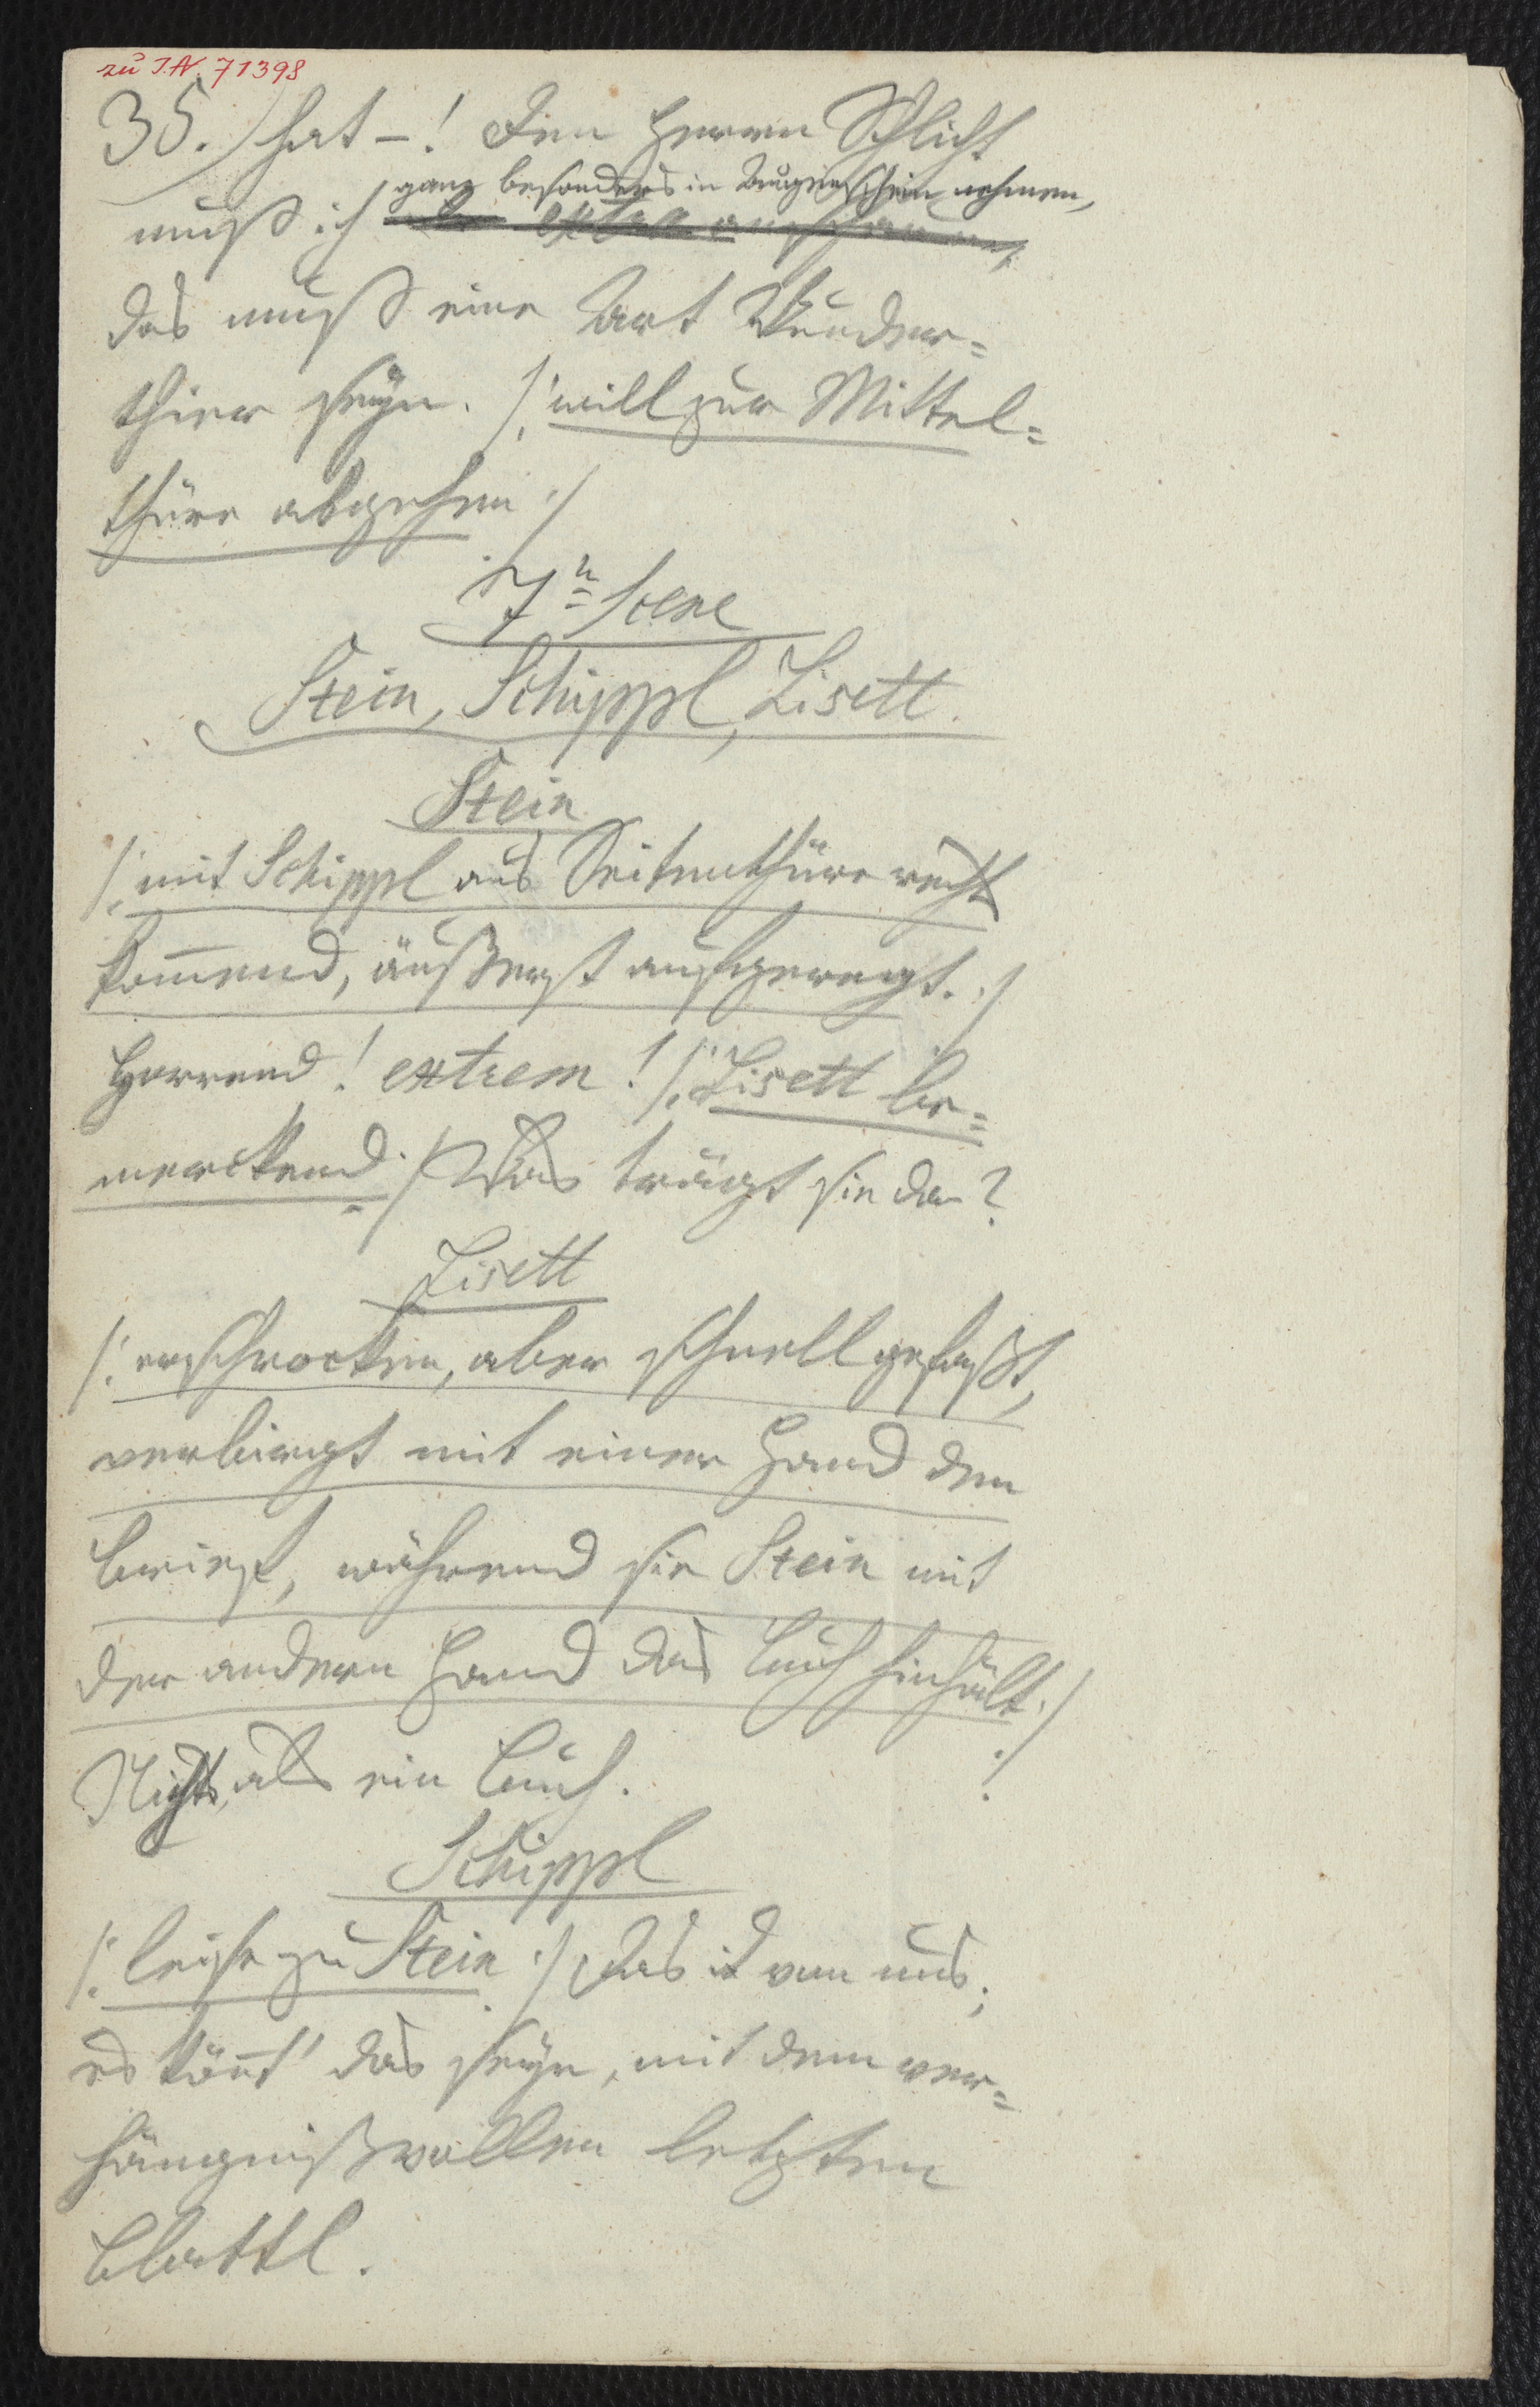 zu I.N. 71398
35.) hat –! Den Herrn Schlicht
ganz besonders in Augenschein nehmen,
muß ich extra anschauen,
das muß eine Art Wunder=
thier seyn. /: will zur Mittel=
thüre abgehen :/
7te Scene
Stein, Schippl, Lisett.
Stein
/: mit Schippl aus Seitenthüre rechts
kom̄end, äußerst aufgeregt. :/
Horrend! extrem! /: Lisett be=
merckend :/ Was trägt sie da?
Lisett
/: erschrocken, aber schnell gefaßt,
verbirgt mit einer Hand den
Brief, während sie Stein mit
der andern Hand das Buch hinhält :/
Nichts, als ein Buch.
Schippl
/: leise zu Stein :/ Das is von uns;
es kön̄t' das seyn, mit dem ver=
hängnißvollen letzten
Blattl.